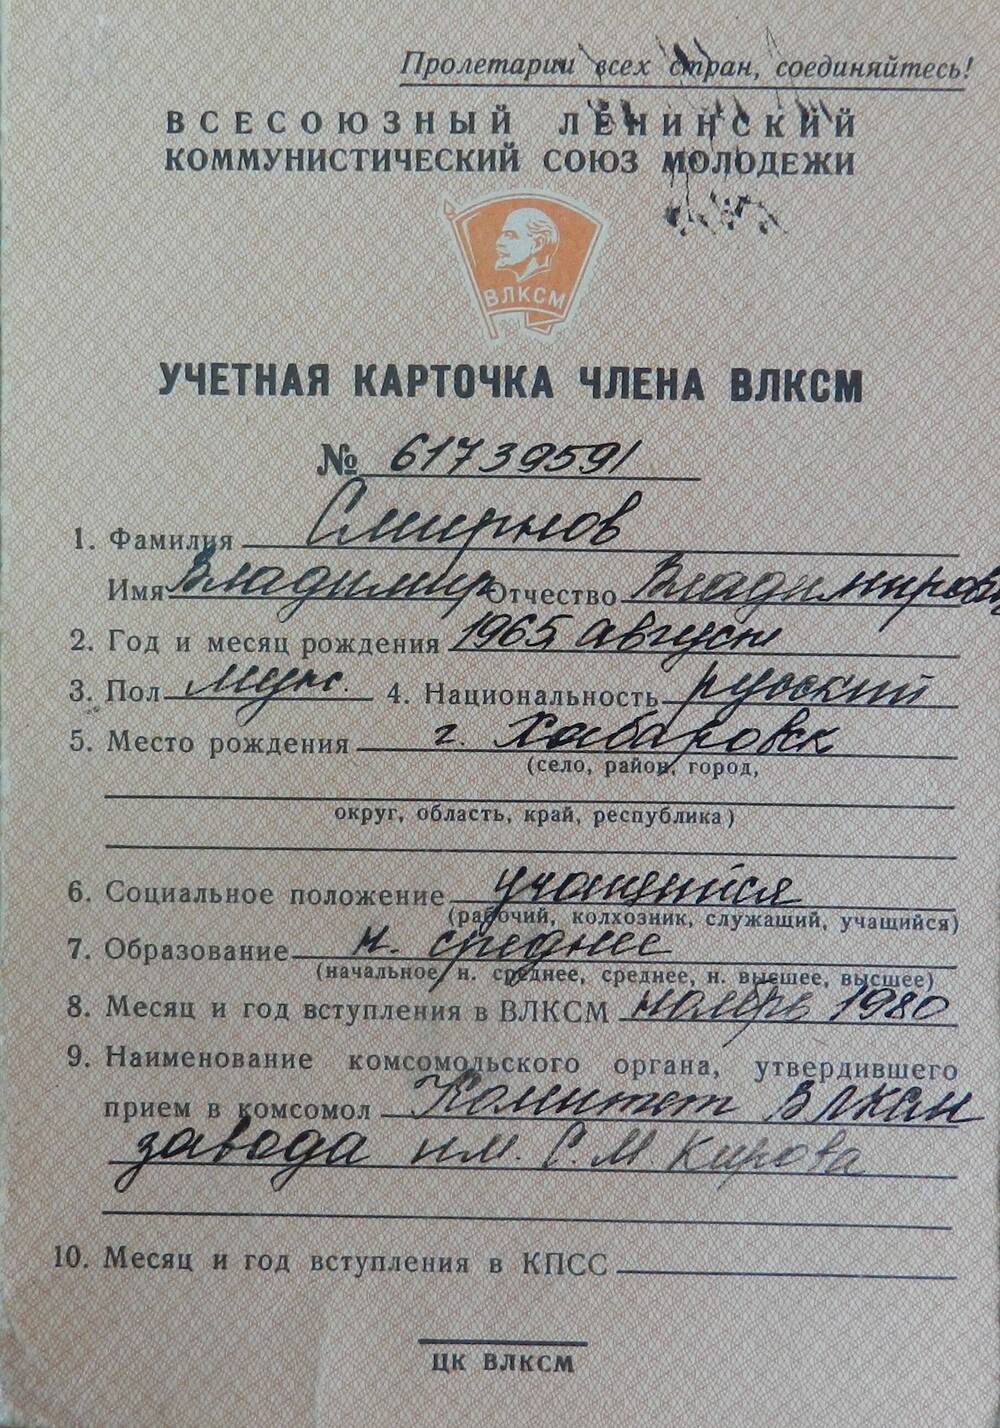 Пролетарии всех стран, соединяйтесь!
ВСЕСОЮЗНЫЙ ЛЕНИНСКИЙ
КОММУНИСТИЧЕСКИЙ СОЮЗ МОЛОДЕЖИ
ВЛКСМ
УЧЕТНАЯ КАРТОЧКА ЧЛЕНА ВЛКСМ
№ 61739591
1. Фамилия Смирнов
Имя Владимир Отчество Владимирович
2. Год и месяц рождения 1965 август
3. Пол муж. 4. Национальность русский
5. Место рождения г. Хабаровск
(село, район, город,
округ, область, край, республика)
6. Социальное положение учащийся
(рабочий, колхозник, служащий, учащийся)
7. Образование н. среднее
(начальное, н. среднее, среднее, н. высшее, высшее)
8. Месяц и год вступления в ВЛКСМ ноябрь 1980
9. Наименование комсомольского органа, утвердившего
прием в комсомол Комитет ВЛКСМ
завода им. С. М Кирова
10. Месяц и год вступления в КПСС
ЦК ВЛКСМ